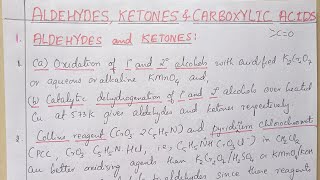 ALDEHYDES, KETONES & CARBOXYLIC ACIDS
>C=O
1. ALDEHYDES and KETONES:
1. (a) Oxidation of 1° and 2° alcohols with acidified K₂Cr₂O₇
or aqueous or alkaline KMnO₄ and,
(b) Catalytic dehydrogenation of 1° and 2° alcohols over heated
Cu at 573K gives aldehydes and ketones respectively.
2. Collins reagent (CrO₃ 2C₅H₅N) and pyridinium chlorochromate
(PCC, CrO₃ C₅H₅N.HCl, i.e., C₅H₅NH CrO₃Cl⁻) in CH₂Cl₂
are better oxidising agents than K₂Cr₂O₇/H₂SO₄ or KMnO₄/KOH
aldehydes since these reagents